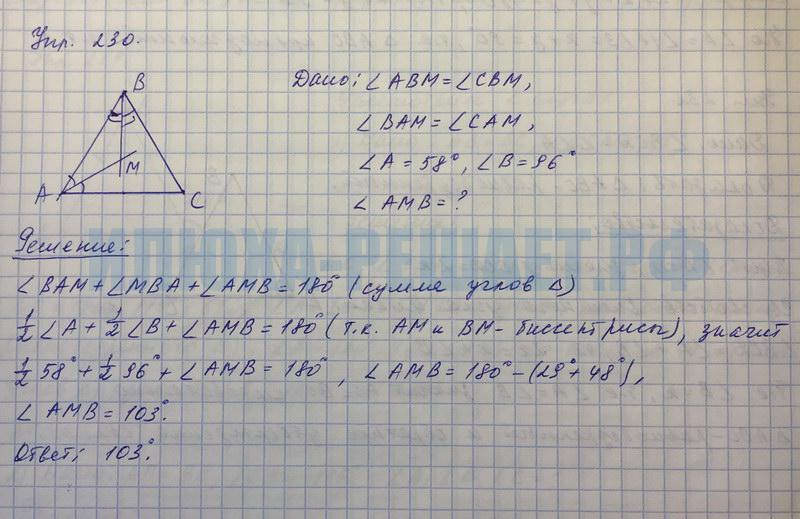 Упр. 230.
B
A
M
C
Дано: ∠ABM = ∠CBM,
∠BAM = ∠CAM,
∠A = 58°, ∠B = 96°
∠AMB = ?
Решение:
ИЛЮХА-РЕШАЕТ.РФ
∠BAM + ∠MBA + ∠AMB = 180° (сумма углов Δ)
1/2 ∠A + 1/2 ∠B + ∠AMB = 180° (т.к. AM и BM - биссектрисы), значит
1/2 58° + 1/2 96° + ∠AMB = 180°, ∠AMB = 180° - (29° + 48°),
∠AMB = 103°.
Ответ: 103°.